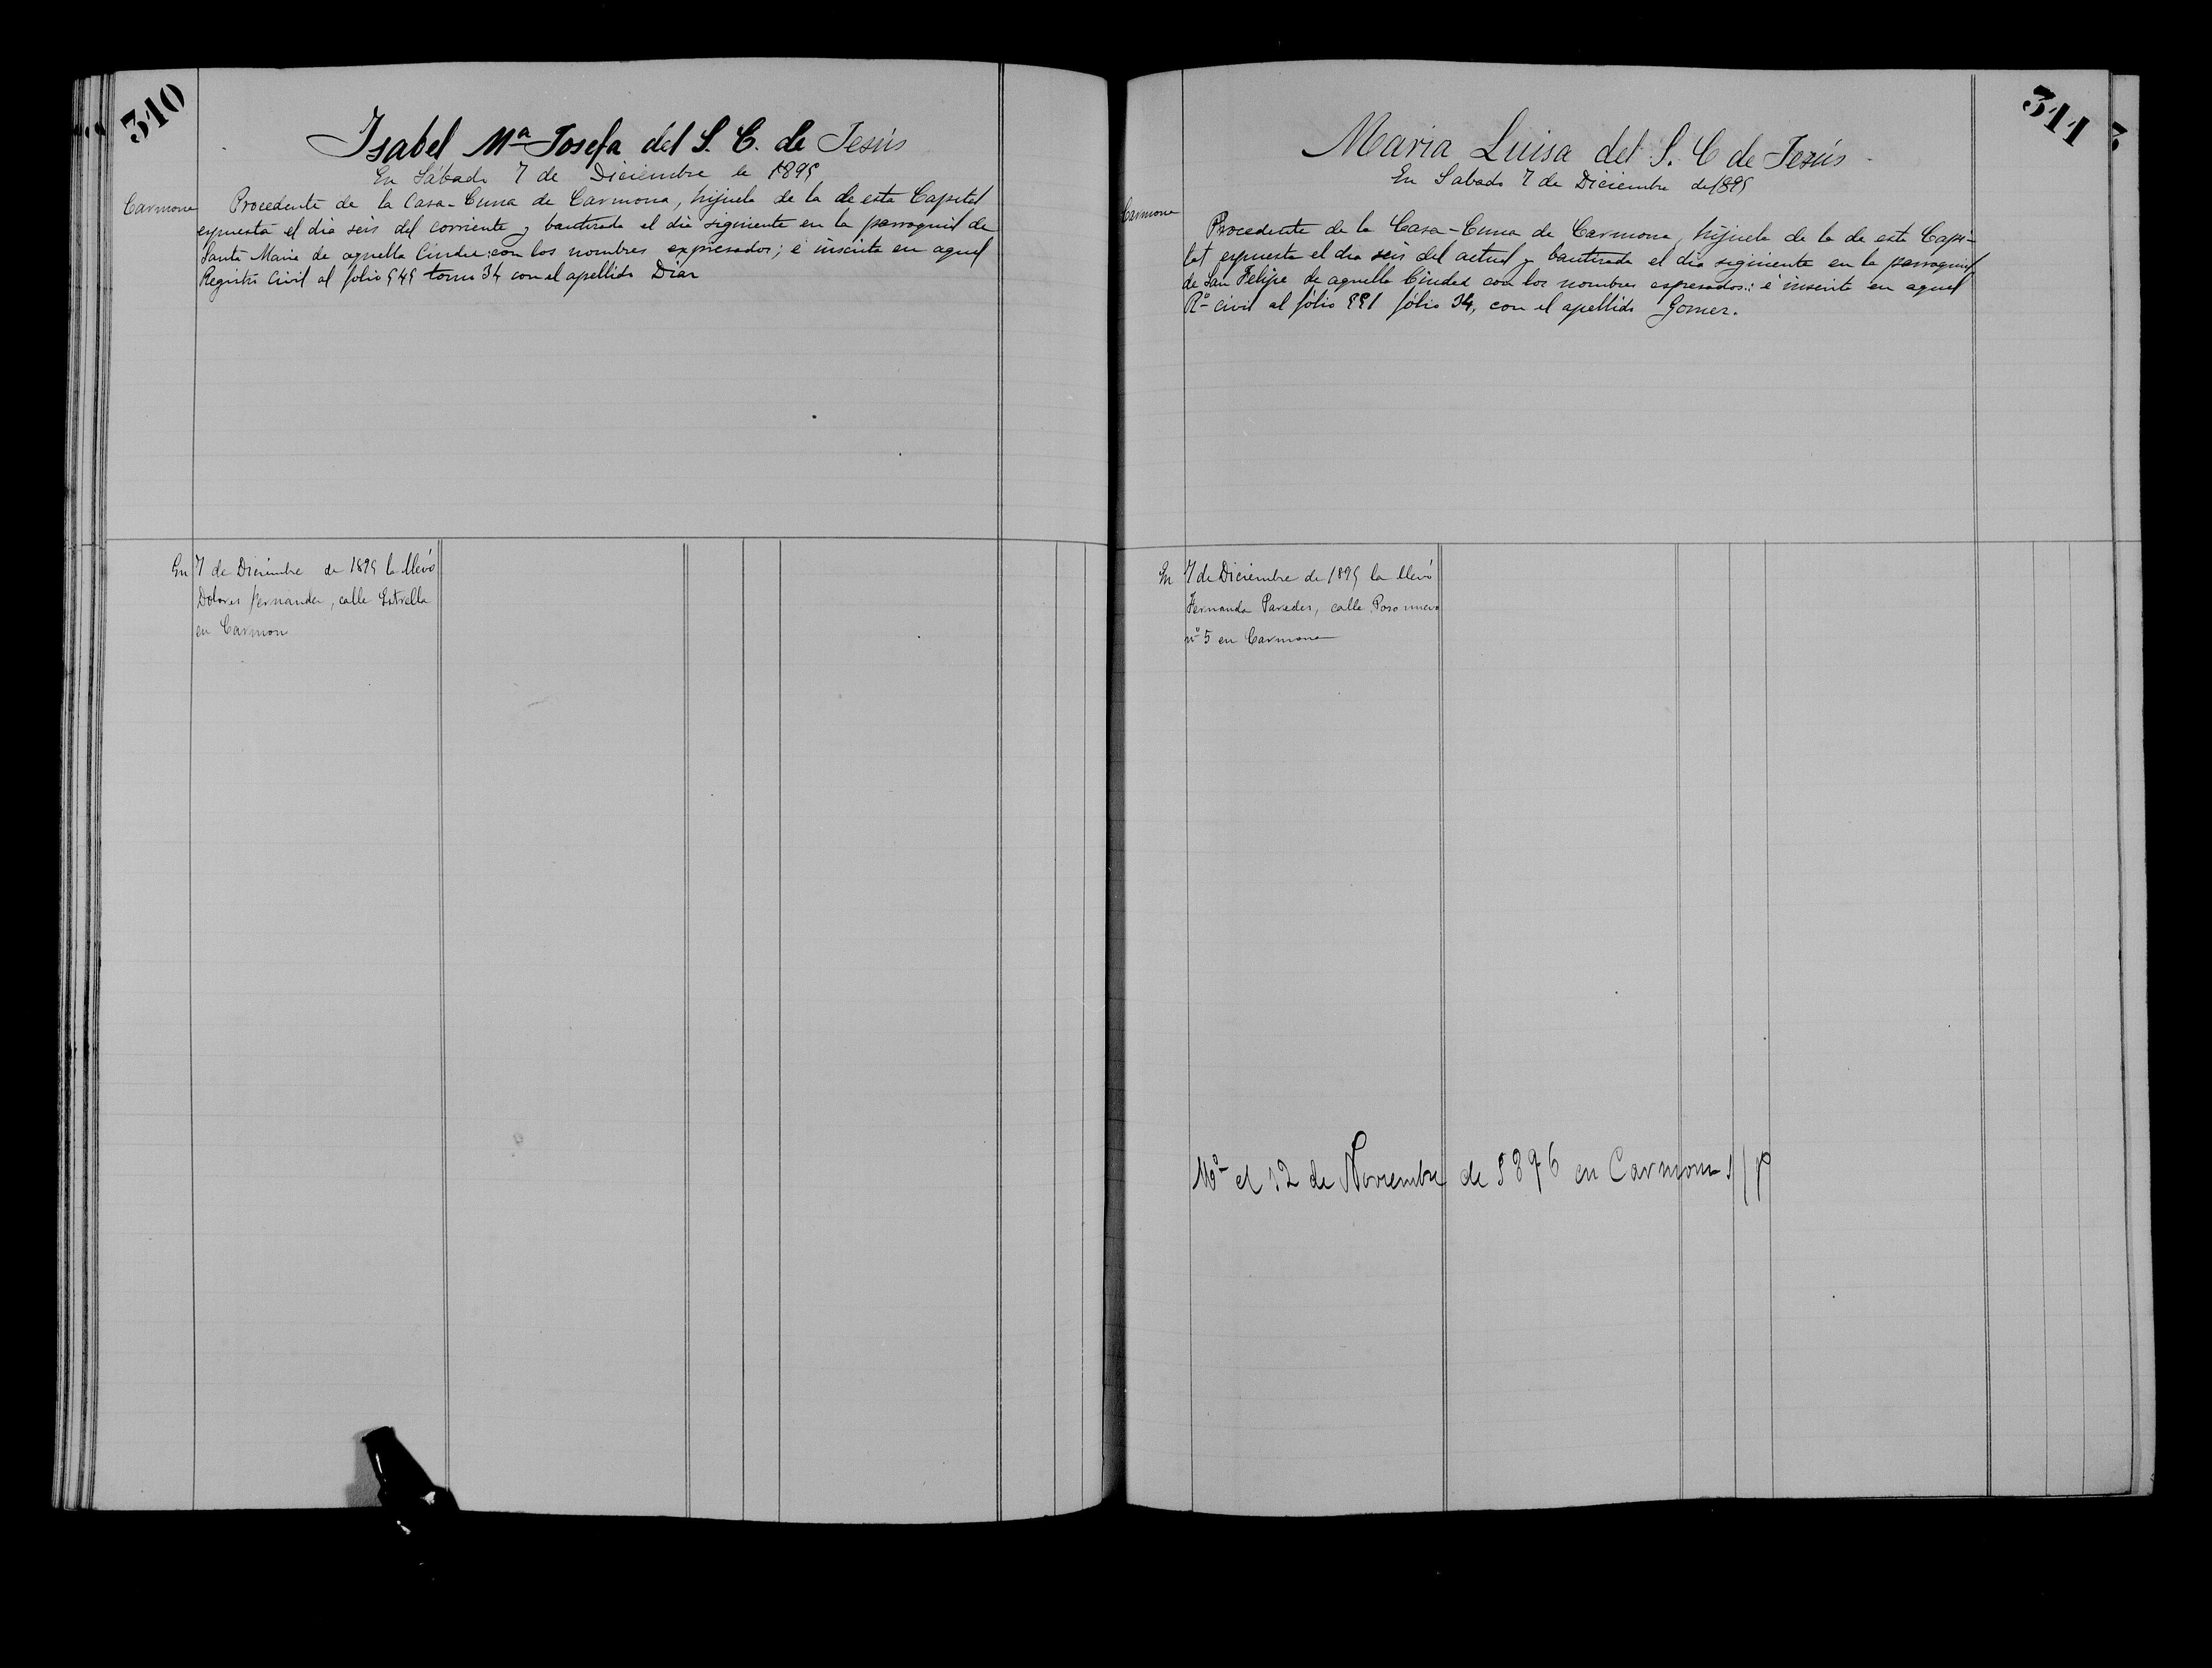 310
Isabel Mª Josefa del S. C. de Jesús
En Sábado 7 de Diciembre de 1895
Carmona
Procedente de la Casa-Cuna de Carmona, hijuela de la de esta Capital
expuesta el dia seis del corriente y bautizada el dia siguiente en la parroquial de
Santa Maria de aquella Ciudad con los nombres expresados; é inscrita en aquel
Registro Civil al folio 549 tomo 34 con el apellido Diaz
En 7 de Diciembre de 1895 la llevó
Dolores Fernandez, calle Estrella
en Carmona
311
Maria Luisa del S. C de Jesús
En Sabado 7 de Diciembre de 1895
Carmona
Procedente de la Casa-Cuna de Carmona, hijuela de la de esta Capi-
tal expuesta el dia seis del actual y bautizada el dia siguiente en la parroquial
de San Felipe de aquella Ciudad con los nombres espresados: é inscrita en aquel
Rº Civil al fólio 551 fólio 34, con el apellido Gomez.
En 7 de Diciembre de 1895 la llevó
Fernanda Paredes, calle Pozo nuevo
nº 5 en Carmona
Mº el 12 de Noviembre de 1896 en Carmona